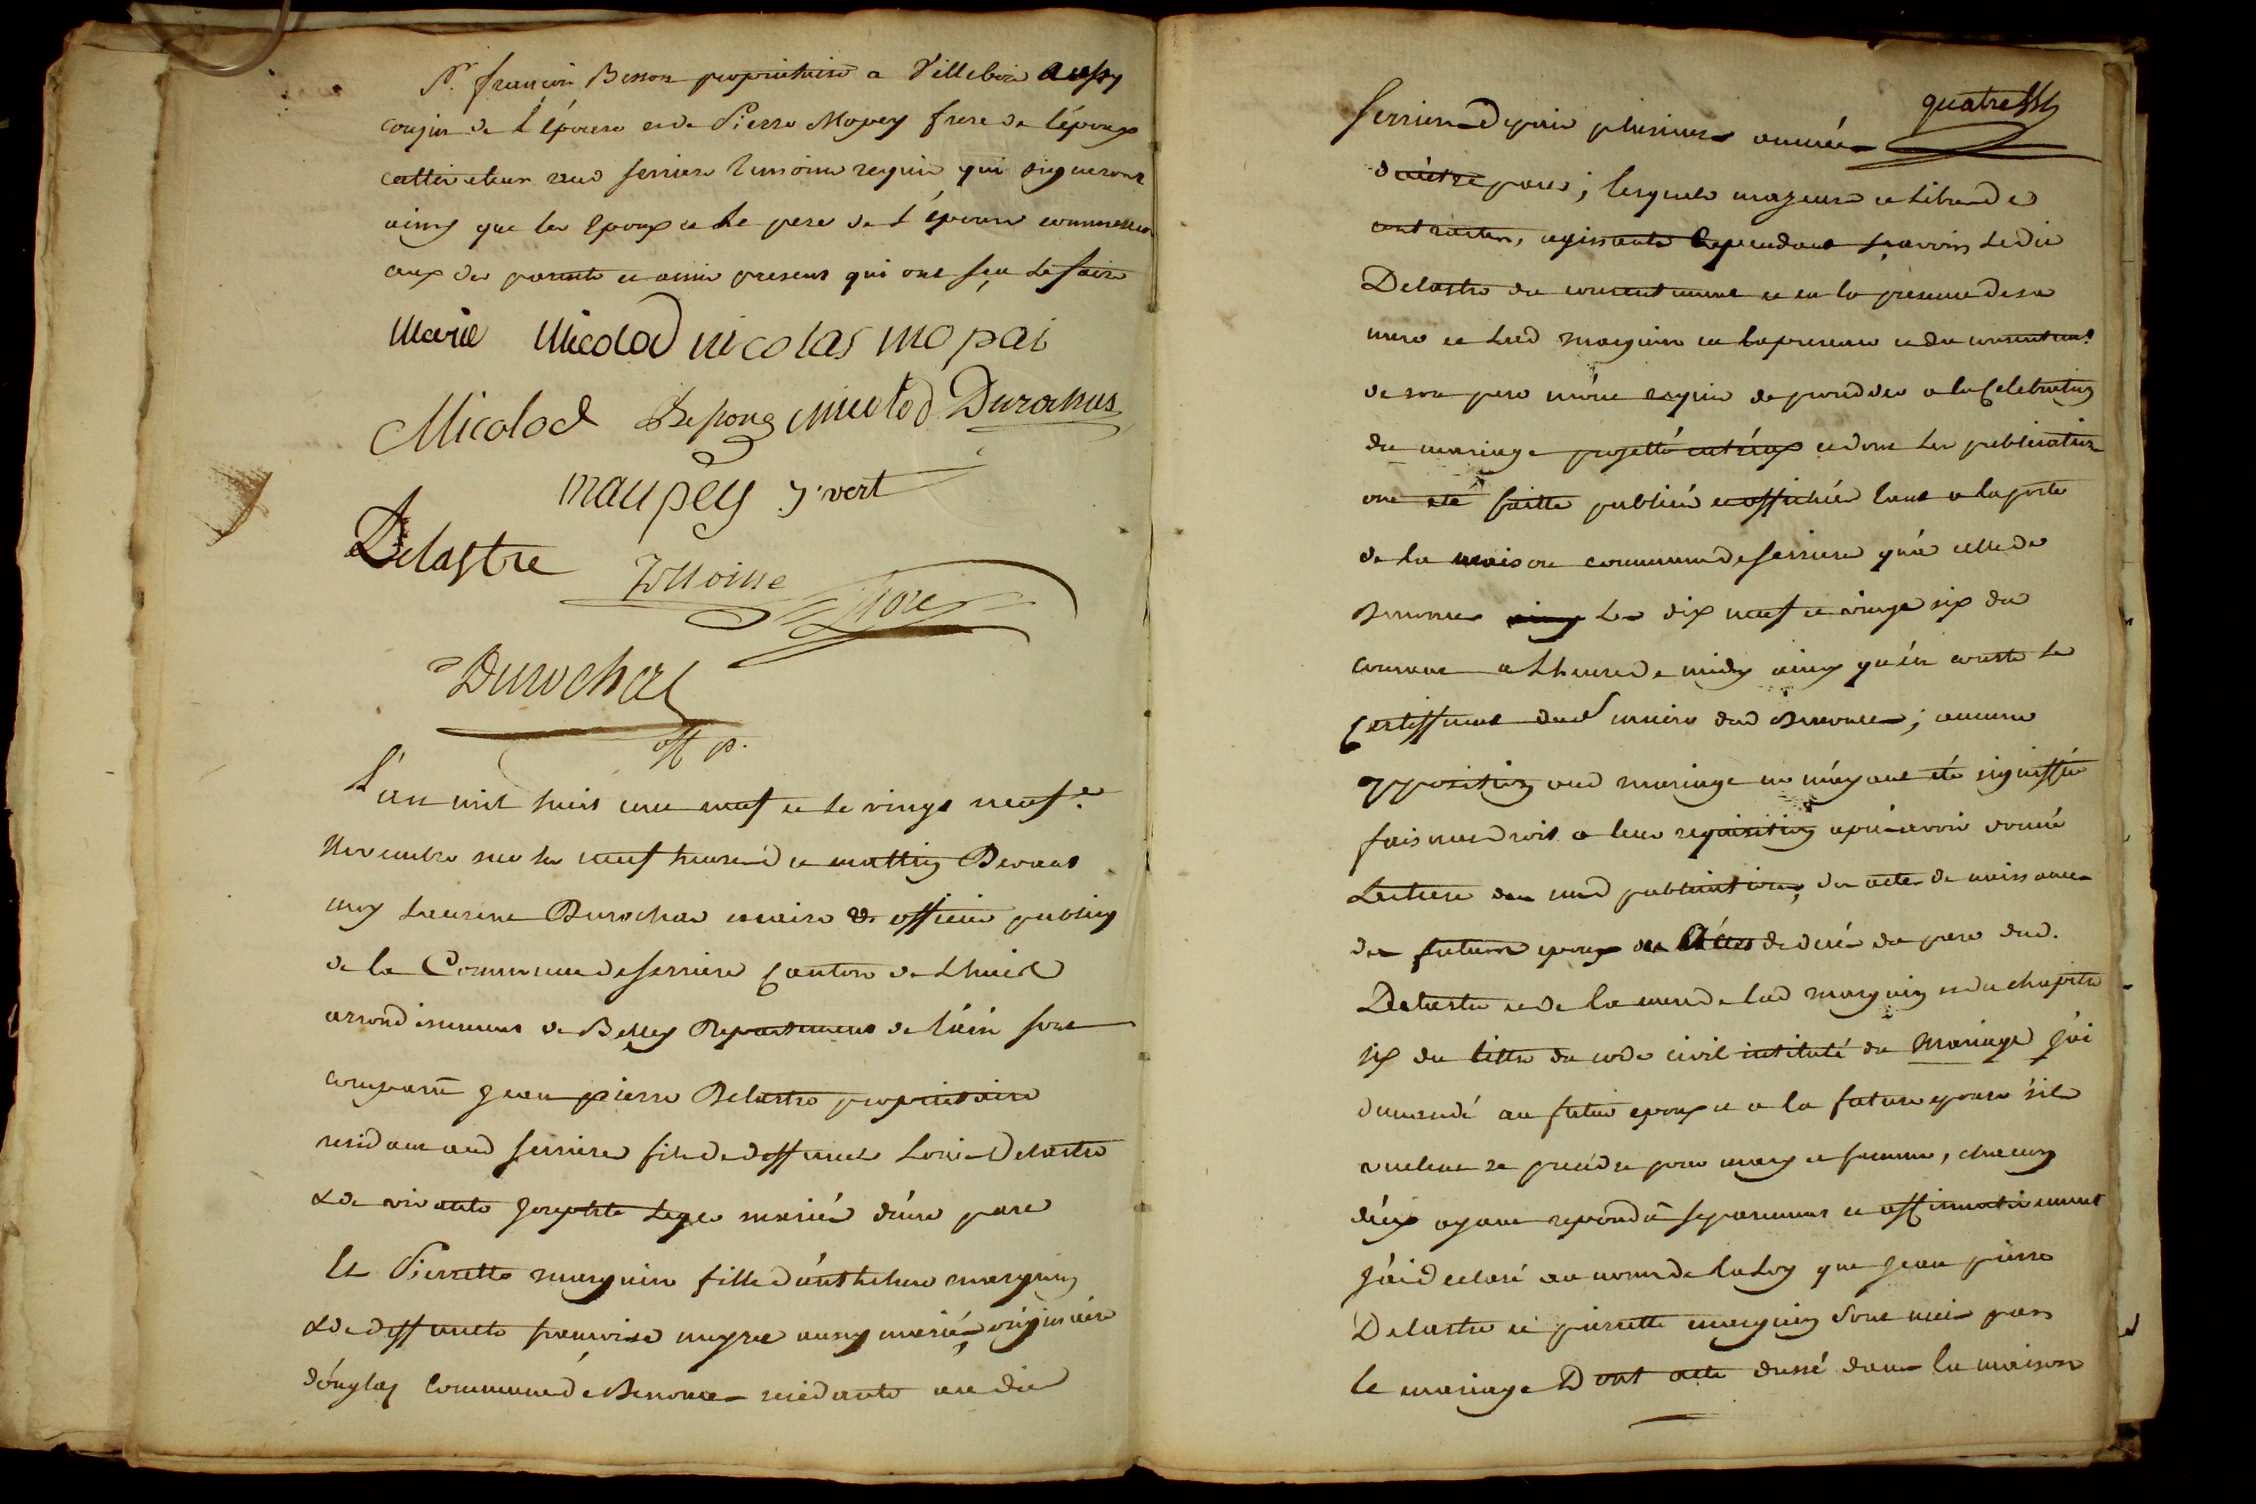 Sr. françois Besson proprietaire a Villebois aussy
cousin de L'épouse et de Pierre Mopey frere de l'époux
cultivateur aud serriere temoins requis qui signeront
ainsy que les Epoux et le pere de L'épouse comme
ceux des parents et amis presents qui ont sçu le faire
Marie Micolod nicolas mopai
Micolod Besson micolod Durochas
maupey J. vert
Delastre
Durochat
off p.
L'an mil huit cent neuf et le vingt neuf.e
Novembre sur les neuf heures du mattin Devant
moy Laurent Durochat maire et officier publicq
de la Commune de serriere Canton de Lhuis
arrondissement de Belley Departement de l'ain sont
comparu Jean pierre Delastre proprietaire
residant aud serriere fils de deffunct Louis Delastre
& de vivante Josephte Leger mariés d'une part
Et Pierrette marguin fille d'anthelme marguin
& de deffuncte francoise aussy mariés originaire
commune de Benonce residante au dit
quatre
serriere depuis plusieurs années
d'autre part; lesquels majeurs et libre de
contracter, agissants Cependant sçavoir Ledit
Delastre du consentement et en la presence de sa
mere et Lad marguin en la presence et du consentemt
de son pere m'ont requis de proceder a la Celebration
du mariage projetté entr'eux et dont les publications
ont eté faitte publiés et affichées tant a la porte
de la maison commune de serriere qu'a celle de
Benonce les dix neuf et vingt six du
courant a L'heure de midy ainsy qu'en conste le
Certifficat dud maire dud Benonce; aucune
opposition aud mariage ne m'ayant été signiffiée
faisant droit a leur requisition apres avoir donné
Lecture des publications, des actes de naissance
des futurs epoux des Actes de decés du pere dud.
Delastre et de la mere de lad marguin et du chapitre
six du tittre du code civil intitulé du Mariage j'ai
demandé au futur epoux et a la future epouse s'ils
veulent se prendre pour mary et femme, chacun
d'eux ayant repondu separement et affirmativement
j'ai declaré au nom de la Loy que Jean pierre
Delastre et pierrette marguin sont unis par
le mariage Dont acte dressé dans la maison